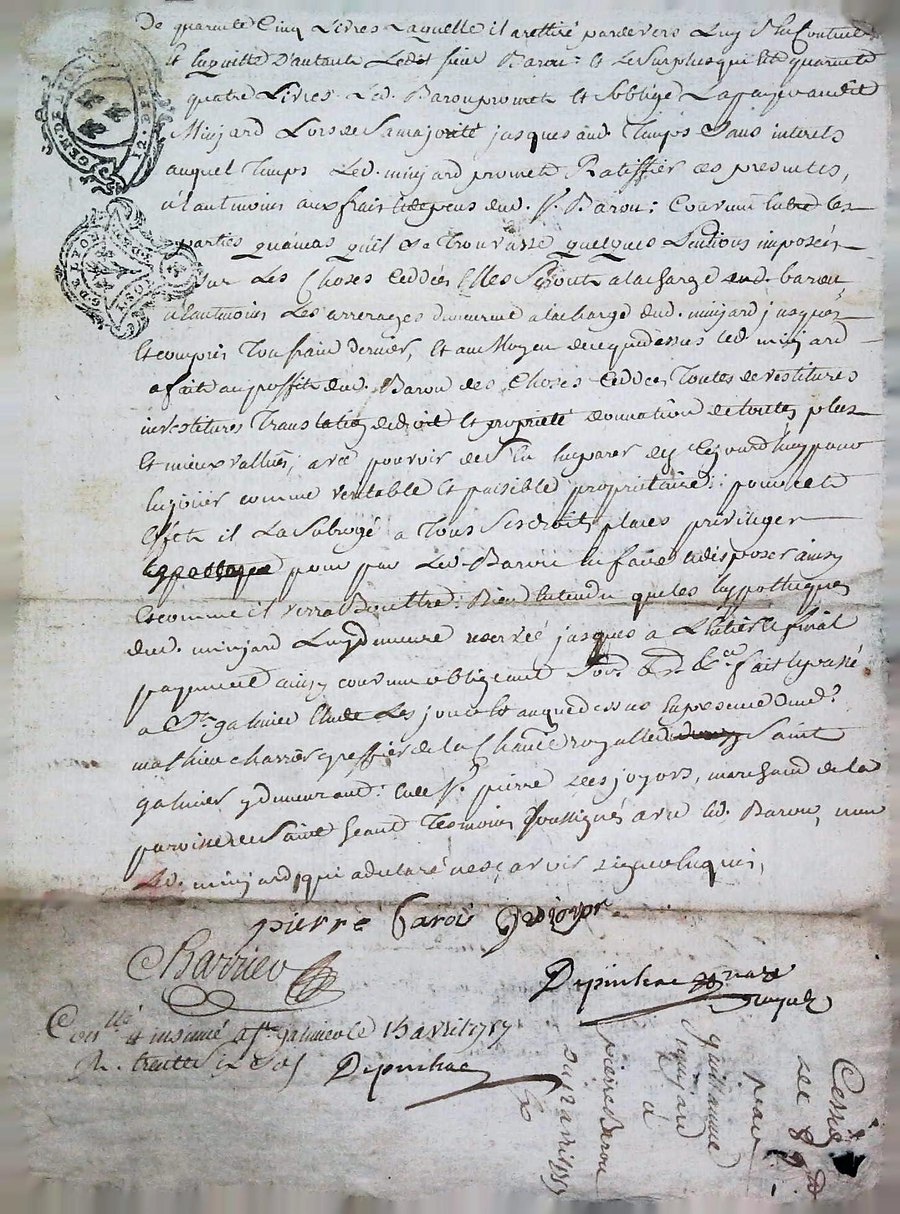 De quarente Cinq Livres Laquelle il a rettiré pardevers Luy
et Enquitte D'autant Ledit sieur Barou: et Le Surplus qui Est quarente
quatre Livres Led. Barou promet et S'obligé La payer audit
Minjard Lors de Sa majorité jusques aud. Temps Sans interets
auquel Temps Led. minjard promet Ratiffier ces presentes,
neantmoins aux frais et depens dud. Sr. Barou; Convenu Entre les
parties quameas quil se Trouvasse quelques pentions imposées
Sur Les Choses Ceddées Elles Seront a la charge dud. barou
neantmoins Les arrerages demeurent a la charge dud. minjard jusques
et compris Toussaint dernier, Et au Moyen de ce que dessus led. minjard
a fait au proffit dud. Barou des Choses Ceddées Toutes devestitures
investitures Translation de droit et proprieté donnation de toutes plus
Et mieux vallues, avec pouvoir de S'en Emparer des Cejourd'huy pour
En jouir comme veritable Et paisible proprietaire: pour cet
Effet il La Subrogé a Tous Ses droits, places privileges
pour par Led. Barou En faire Et disposer ainsy
Et comme il verra Bon Etre: Bien Entendu que les hyppotheques
dud. minjard Luy demeure reservée jusques a L'Entier Et final
payement ainsy convenu obligeant fait Et passé
a St. galmier Etude Les jour Et an que dessus En presence dud. Sr
mathieu charrier greffier de la Chatnie royalle de Saint
galmier y demeurant: Et de Sr. pierre desjoyaux, marchand de la
paroisse de Saint Temoins Soussignés avec led. Barou, non
Led. minjard qui a declaré ne Sçavoir Signer Enquis,
pierre barou
Charrier
Depuihac
notaire
royal
Conllé et insinué a St. galmier le 15 avril 1757
R. trente Six Sols Depuihac
Cession
par
guillaume
minjard
a
pierre Barou
du 12 avril 1757